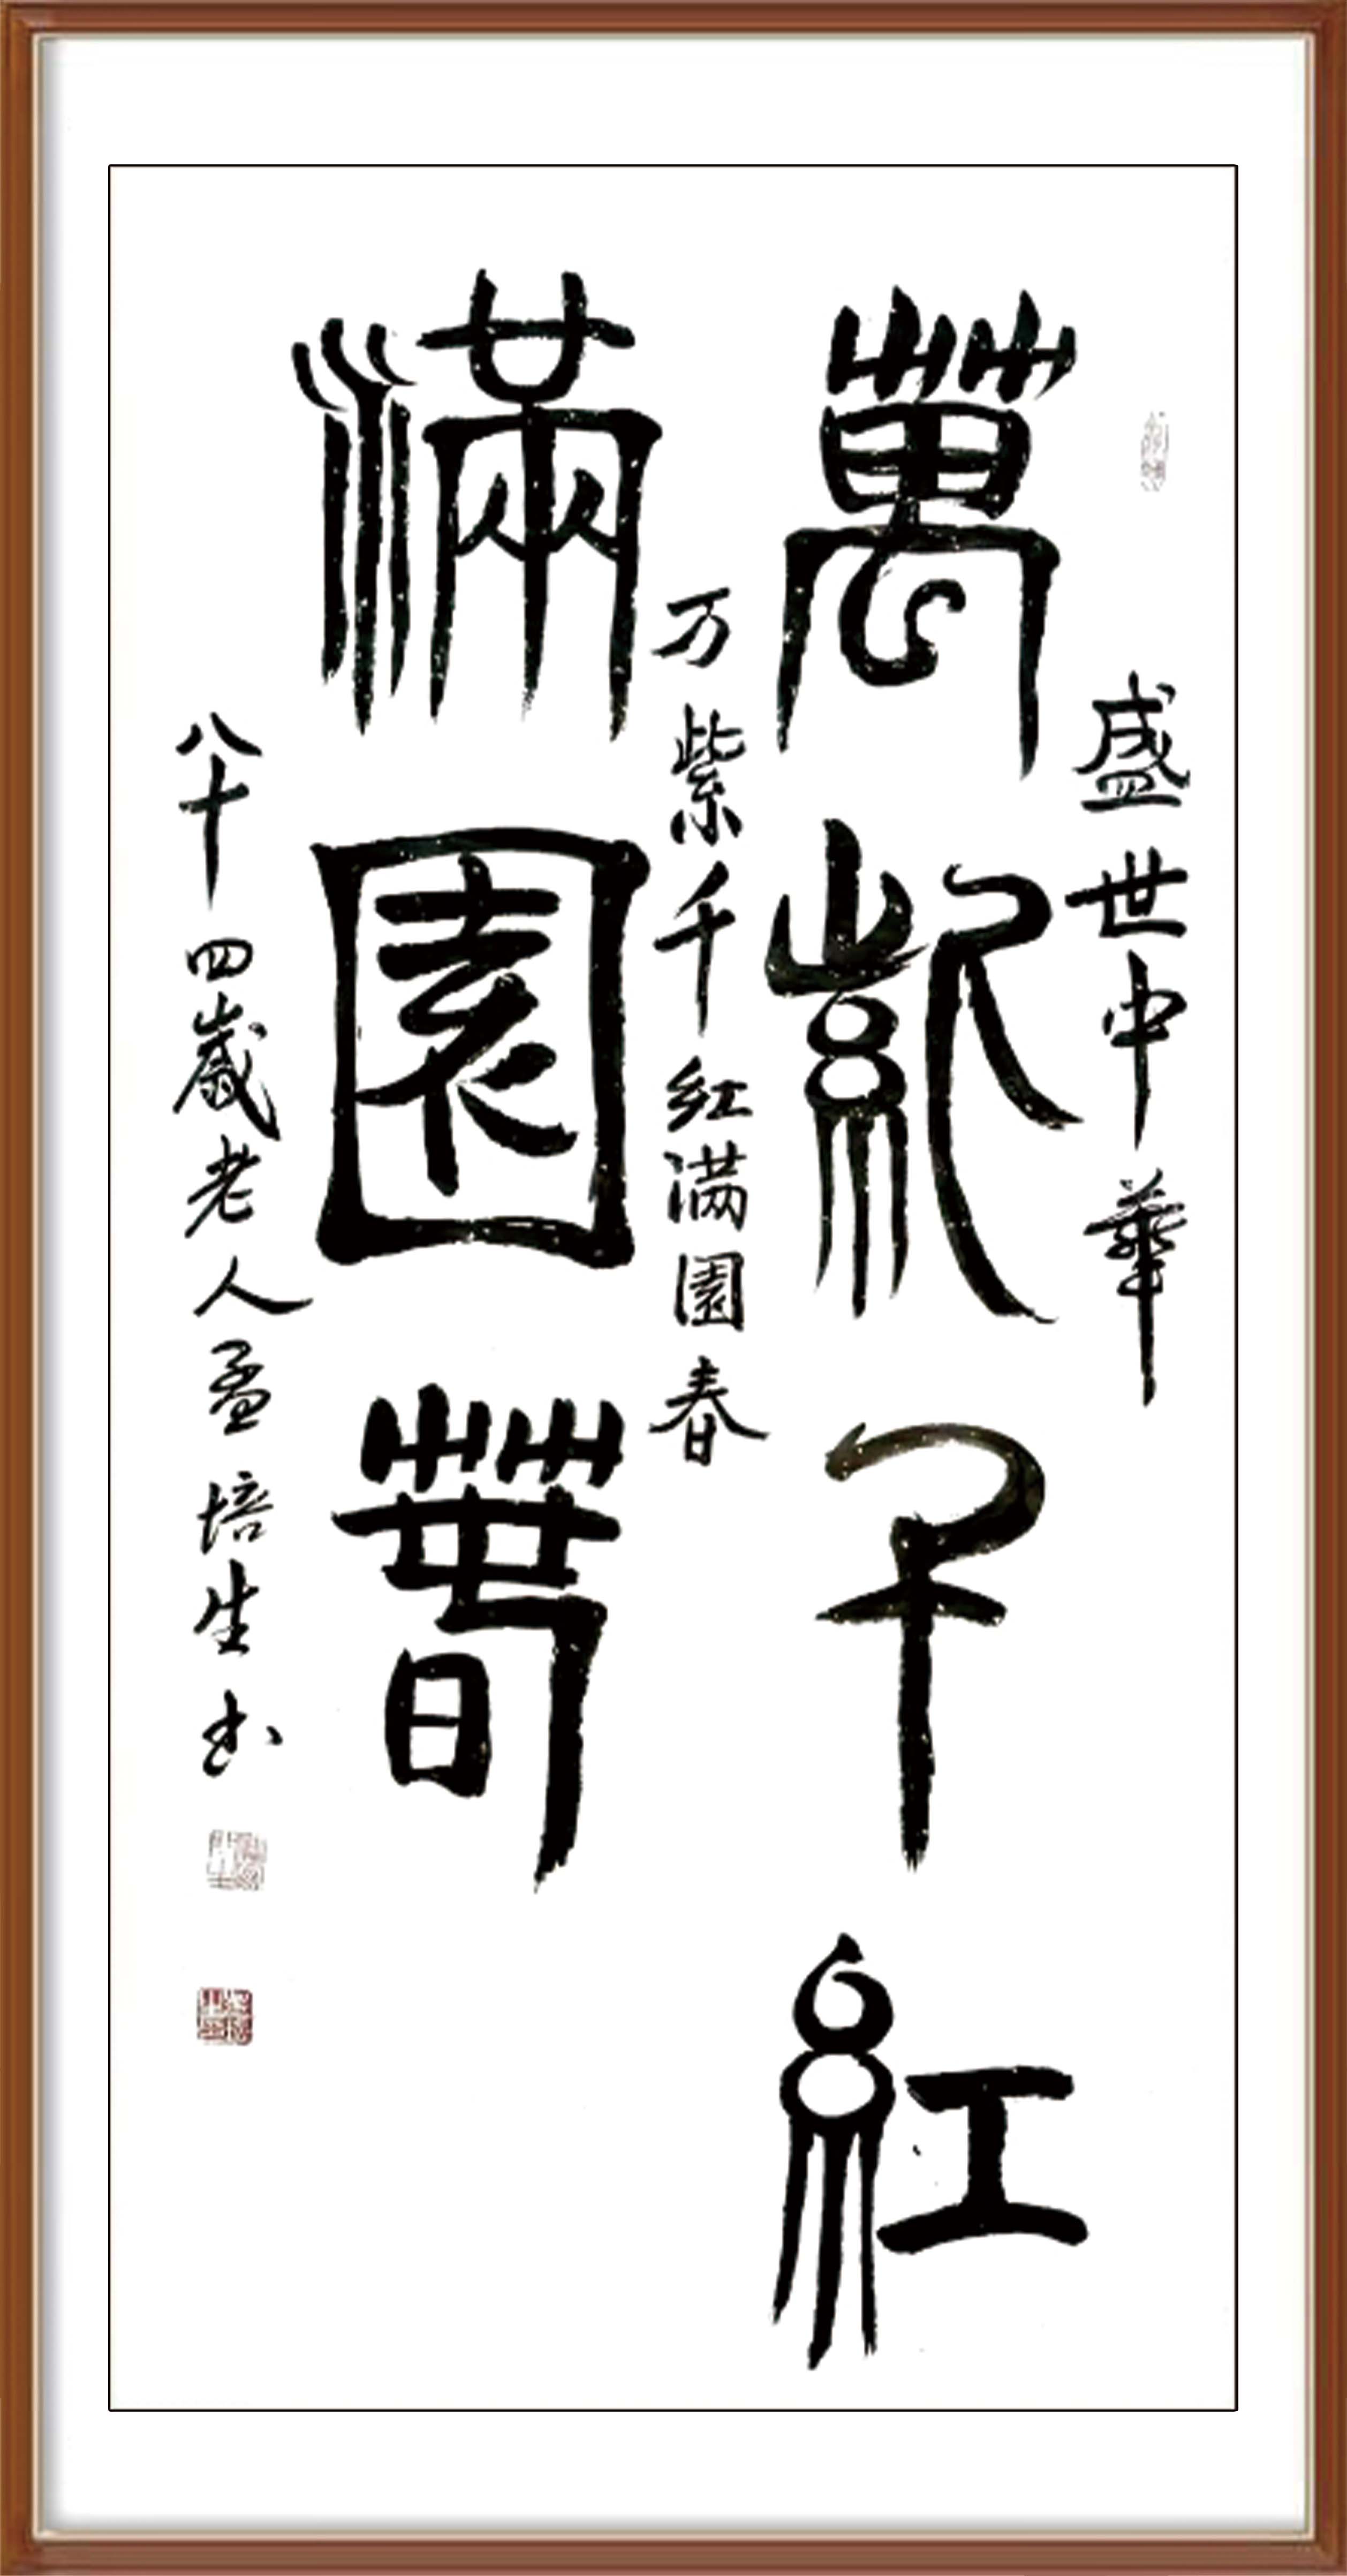 盛世中華
萬紫千紅
万紫千红满園春
滿園萅
八十四歲老人孟培生书